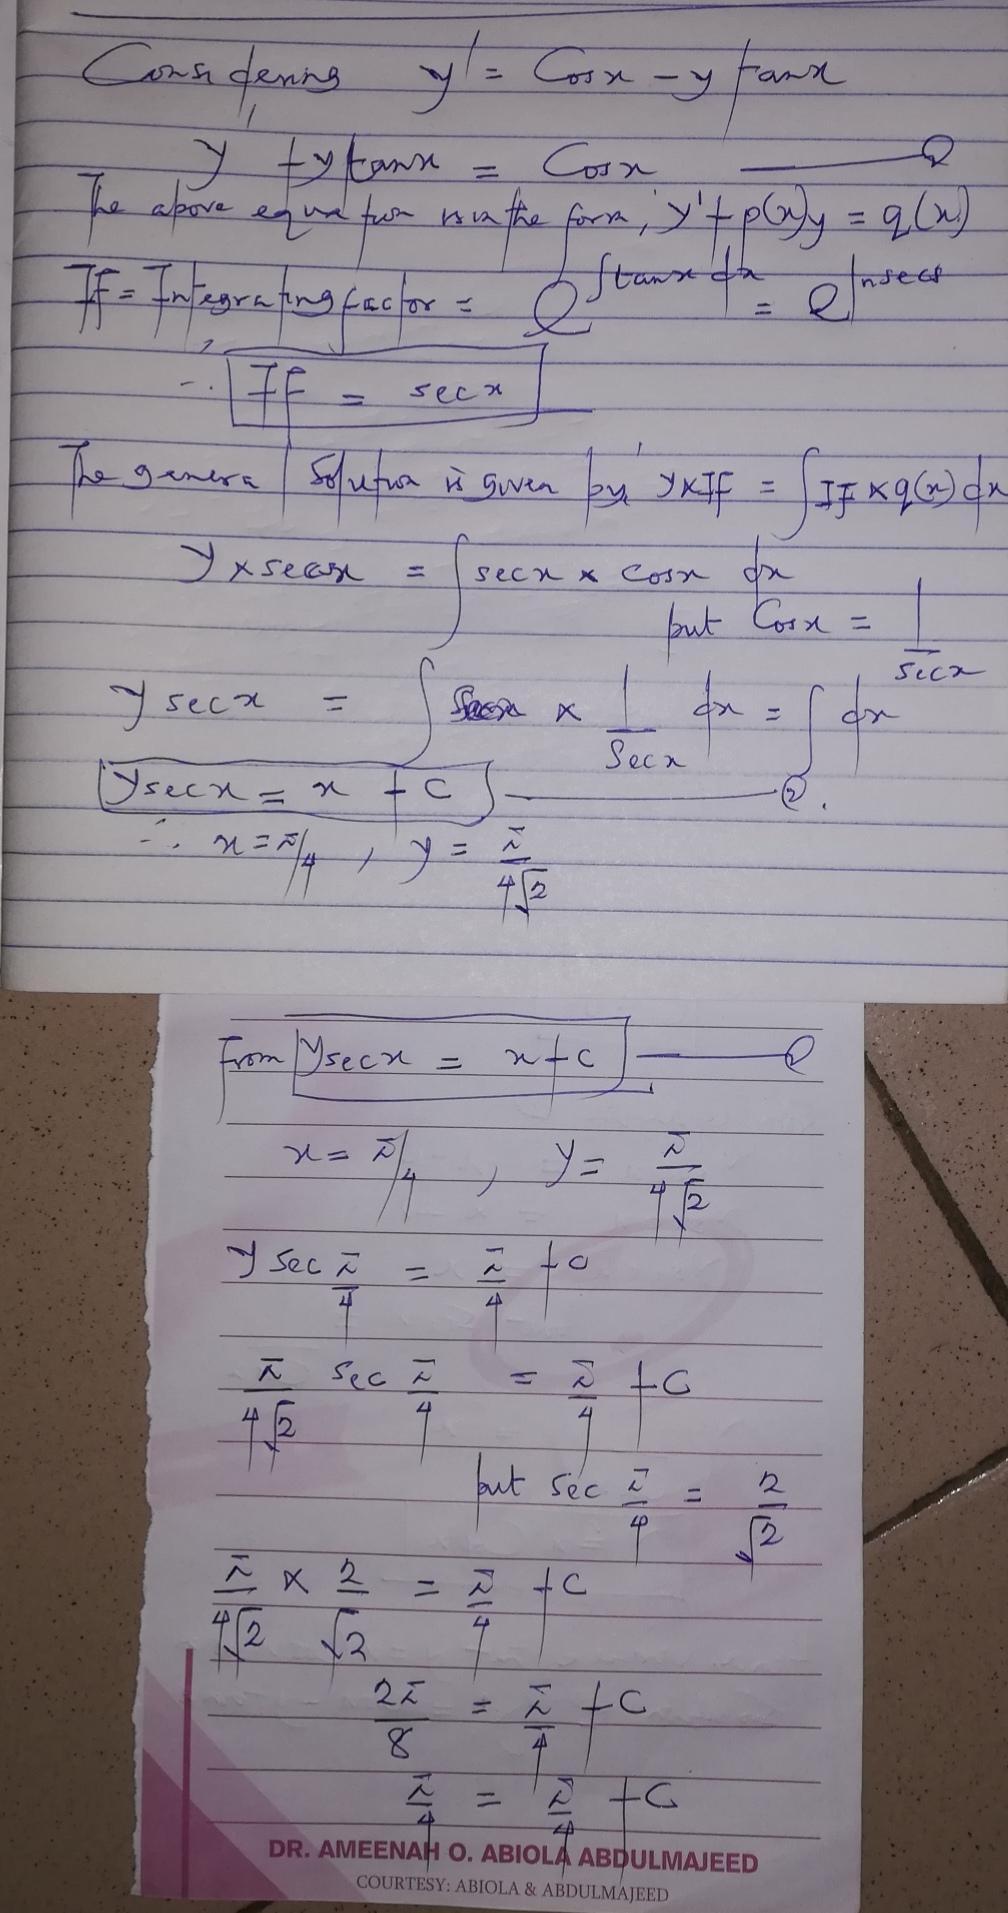 Considering y' = Cosx - y tanx
y' + y tanx = Cosx
The above equation is in the form, y' + p(x)y = q(x)
If = Integrating factor = e^∫tanx dx = e^lnsecx
∴ IF = secx
The general solution is given by, y x IF = ∫IF x q(x) dx
y x secx = ∫ secx x cosx dx
but Cosx = 1/secx
y secx = ∫ secx x 1/Secx dx = ∫ dx
ysecx = x + C ② .
∴ x = π/4 , y = π/4√2
from ysecx = x + C
x = π/4 , y = π/4√2
y sec π/4 = π/4 + C
π/4√2 sec π/4 = π/4 + C
but sec π/4 = 2/√2
π/4√2 x 2/√2 = π/4 + C
2π/8 = π/4 + C
π/4 = π/4 + C
DR. AMEENAH O. ABIOLA ABDULMAJEED
COURTESY: ABIOLA & ABDULMAJEED